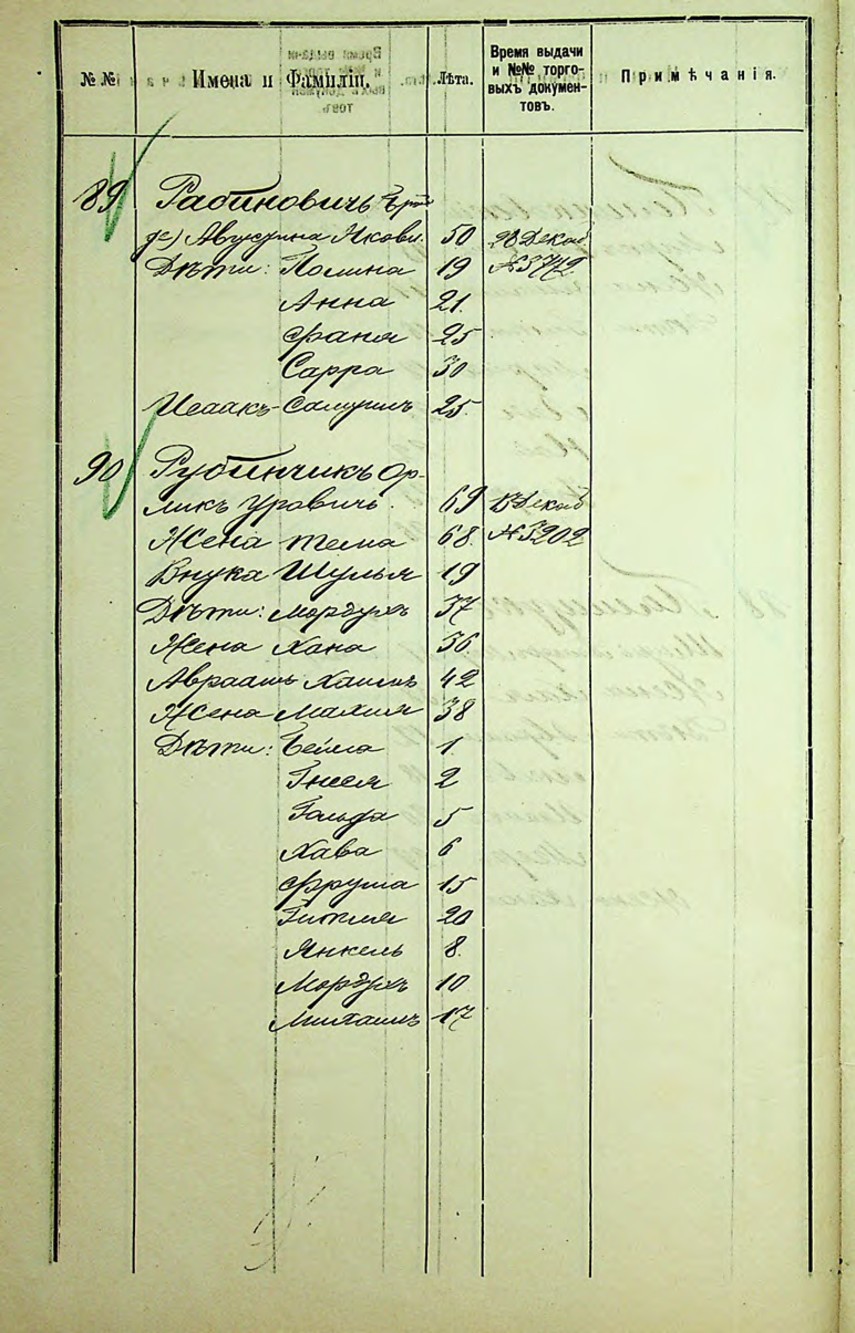 №№
Имена и Фамиліи.
Лѣта.
Время выдачи
и №№ торго-
выхъ докумен-
товъ.
Примѣчанія.
89 Рабиновичъ
де) Августина Яковл. 50 28 Декаб
Дѣти: Полина 19 №3772
Анна 21.
Фаня 25
Сарра 30
Исаакъ-Самуилъ 25.
90 Рубинчикъ Ор-
ликъ Уровичъ. 69 Декаб
Жена Тема 68. №3202
Внука Шулья 19
Дѣти: Мордухъ 37
Жена Хана 36
Авраамъ Хаимъ 42
Жена Махля 38
Дѣти: Бейла 1
Гнеся 2
Гольда 5
Хава 6
Фрума 15
20
Янкель 8.
Мордухъ 10
Михаилъ 17